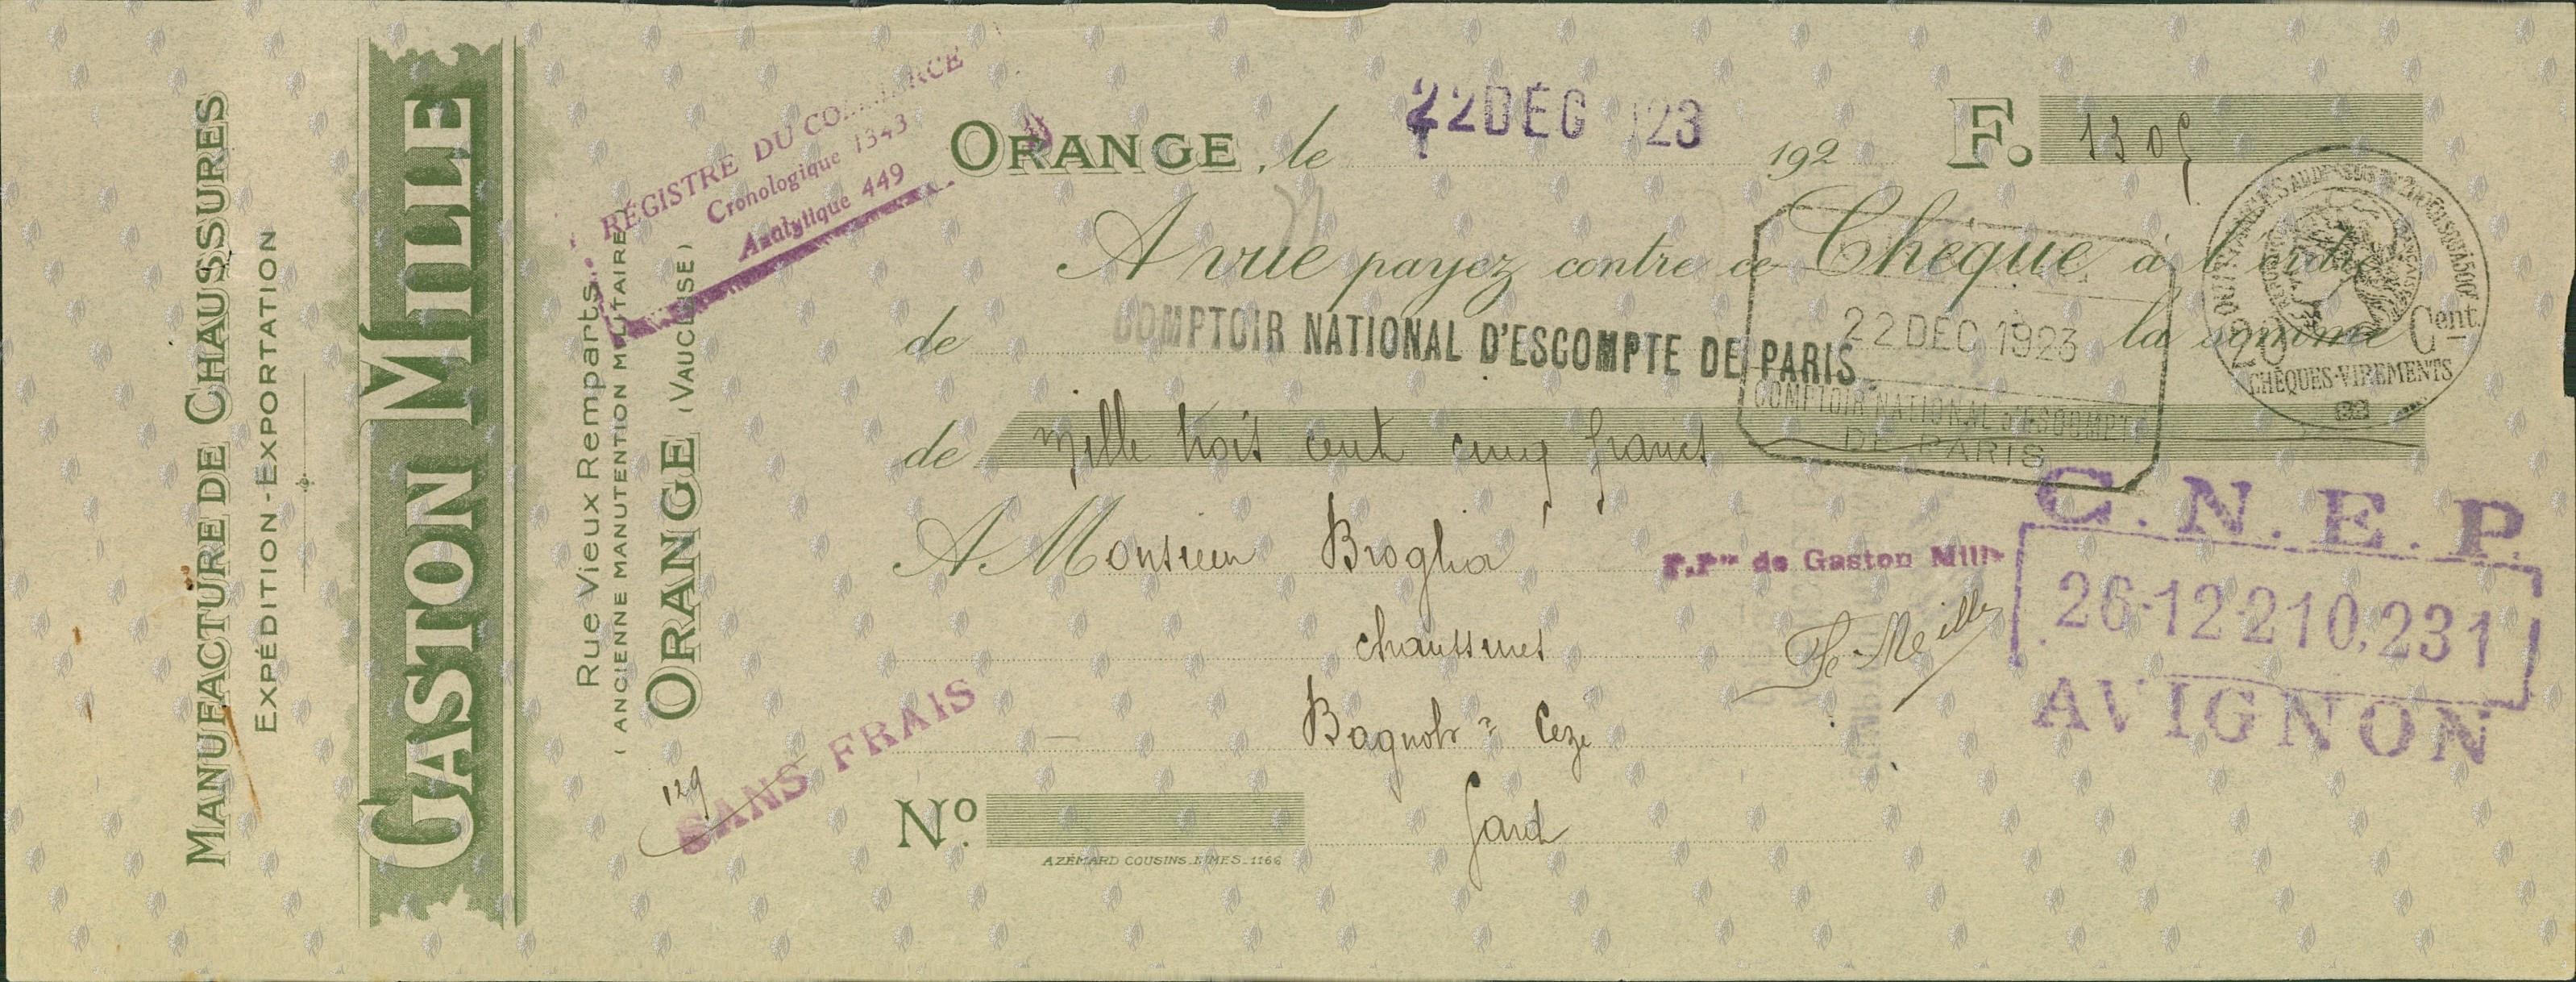 MANUFACTURE DE CHAUSSURES
EXPÉDITION-EXPORTATION
GASTON MILLE
Rue Vieux Remparts
(ANCIENNE MANUTENTION MILITAIRE)
ORANGE (VAUCLUSE)
REGISTRE DU COMMERCE
Cronologique 1343
Analytique 449
ORANGE, le 22 DEC 123 192
F. 1305
A vue payez contre ce Chèque à l'ordre
de COMPTOIR NATIONAL D'ESCOMPTE DE PARIS la somme
22 DEC 1923
COMPTOIR NATIONAL D'ESCOMPTE
DE PARIS
20 Cent.
CHÈQUES-VIREMENTS
de Mille trois cent cinq francs
A Monsieur Broglia
chaussures
Bagnols s Ceze
Gard
P.Pon de Gaston Mille
C.N.E.P.
26-12 210,231
AVIGNON
129
SANS FRAIS
No.
AZÉMARD COUSINS_NIMES_1166